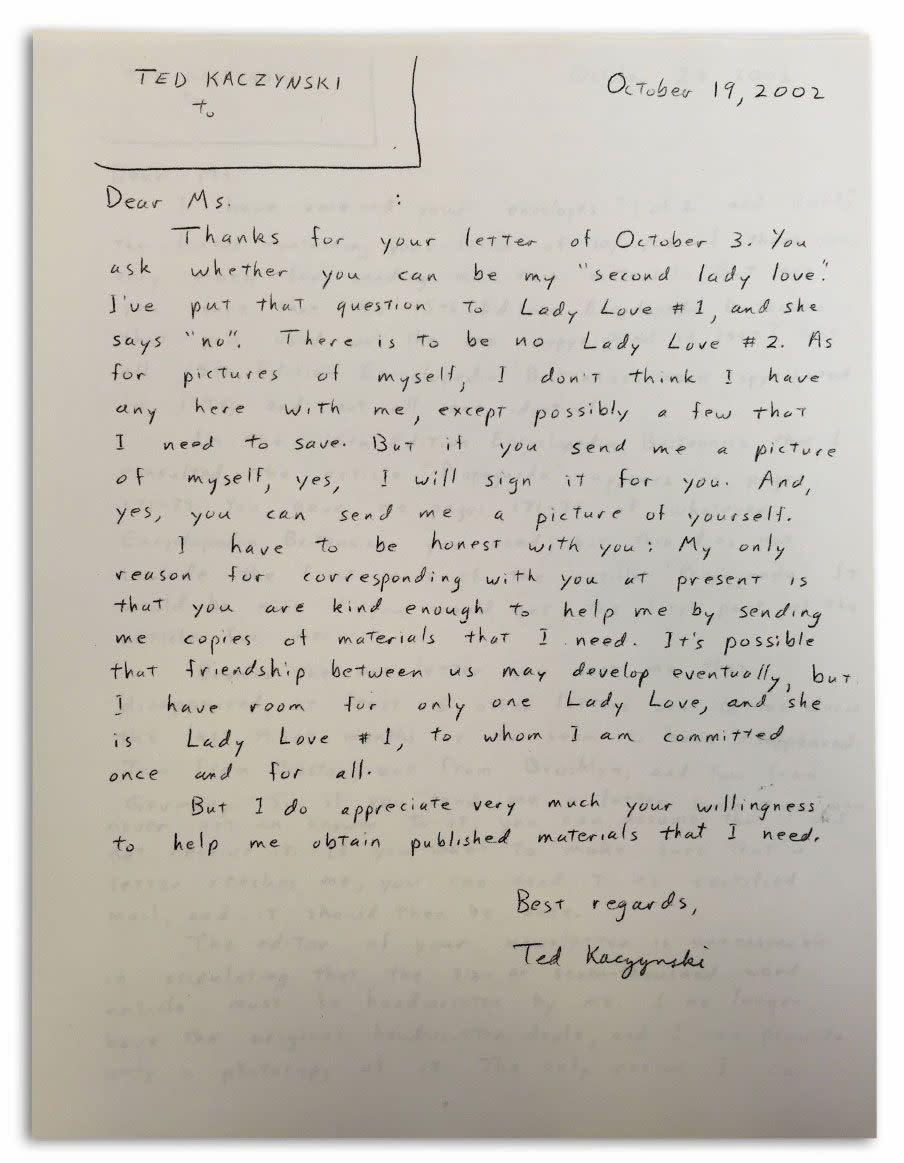 TED KACZYNSKI
to
October 19, 2002
Dear Ms. :
Thanks for your letter of October 3. You
ask whether you can be my "second lady love".
I've put that question to Lady Love #1, and she
says "no". There is to be no Lady Love #2. As
for pictures of myself, I don't think I have
any here with me, except possibly a few that
I need to save. But if you send me a picture
of myself, yes, I will sign it for you. And,
yes, you can send me a picture of yourself.
I have to be honest with you: My only
reason for corresponding with you at present is
that you are kind enough to help me by sending
me copies of materials that I need. It's possible
that friendship between us may develop eventually, but
I have room for only one Lady Love, and she
is Lady Love #1, to whom I am committed
once and for all.
But I do appreciate very much your willingness
to help me obtain published materials that I need.
Best regards,
Ted Kaczynski